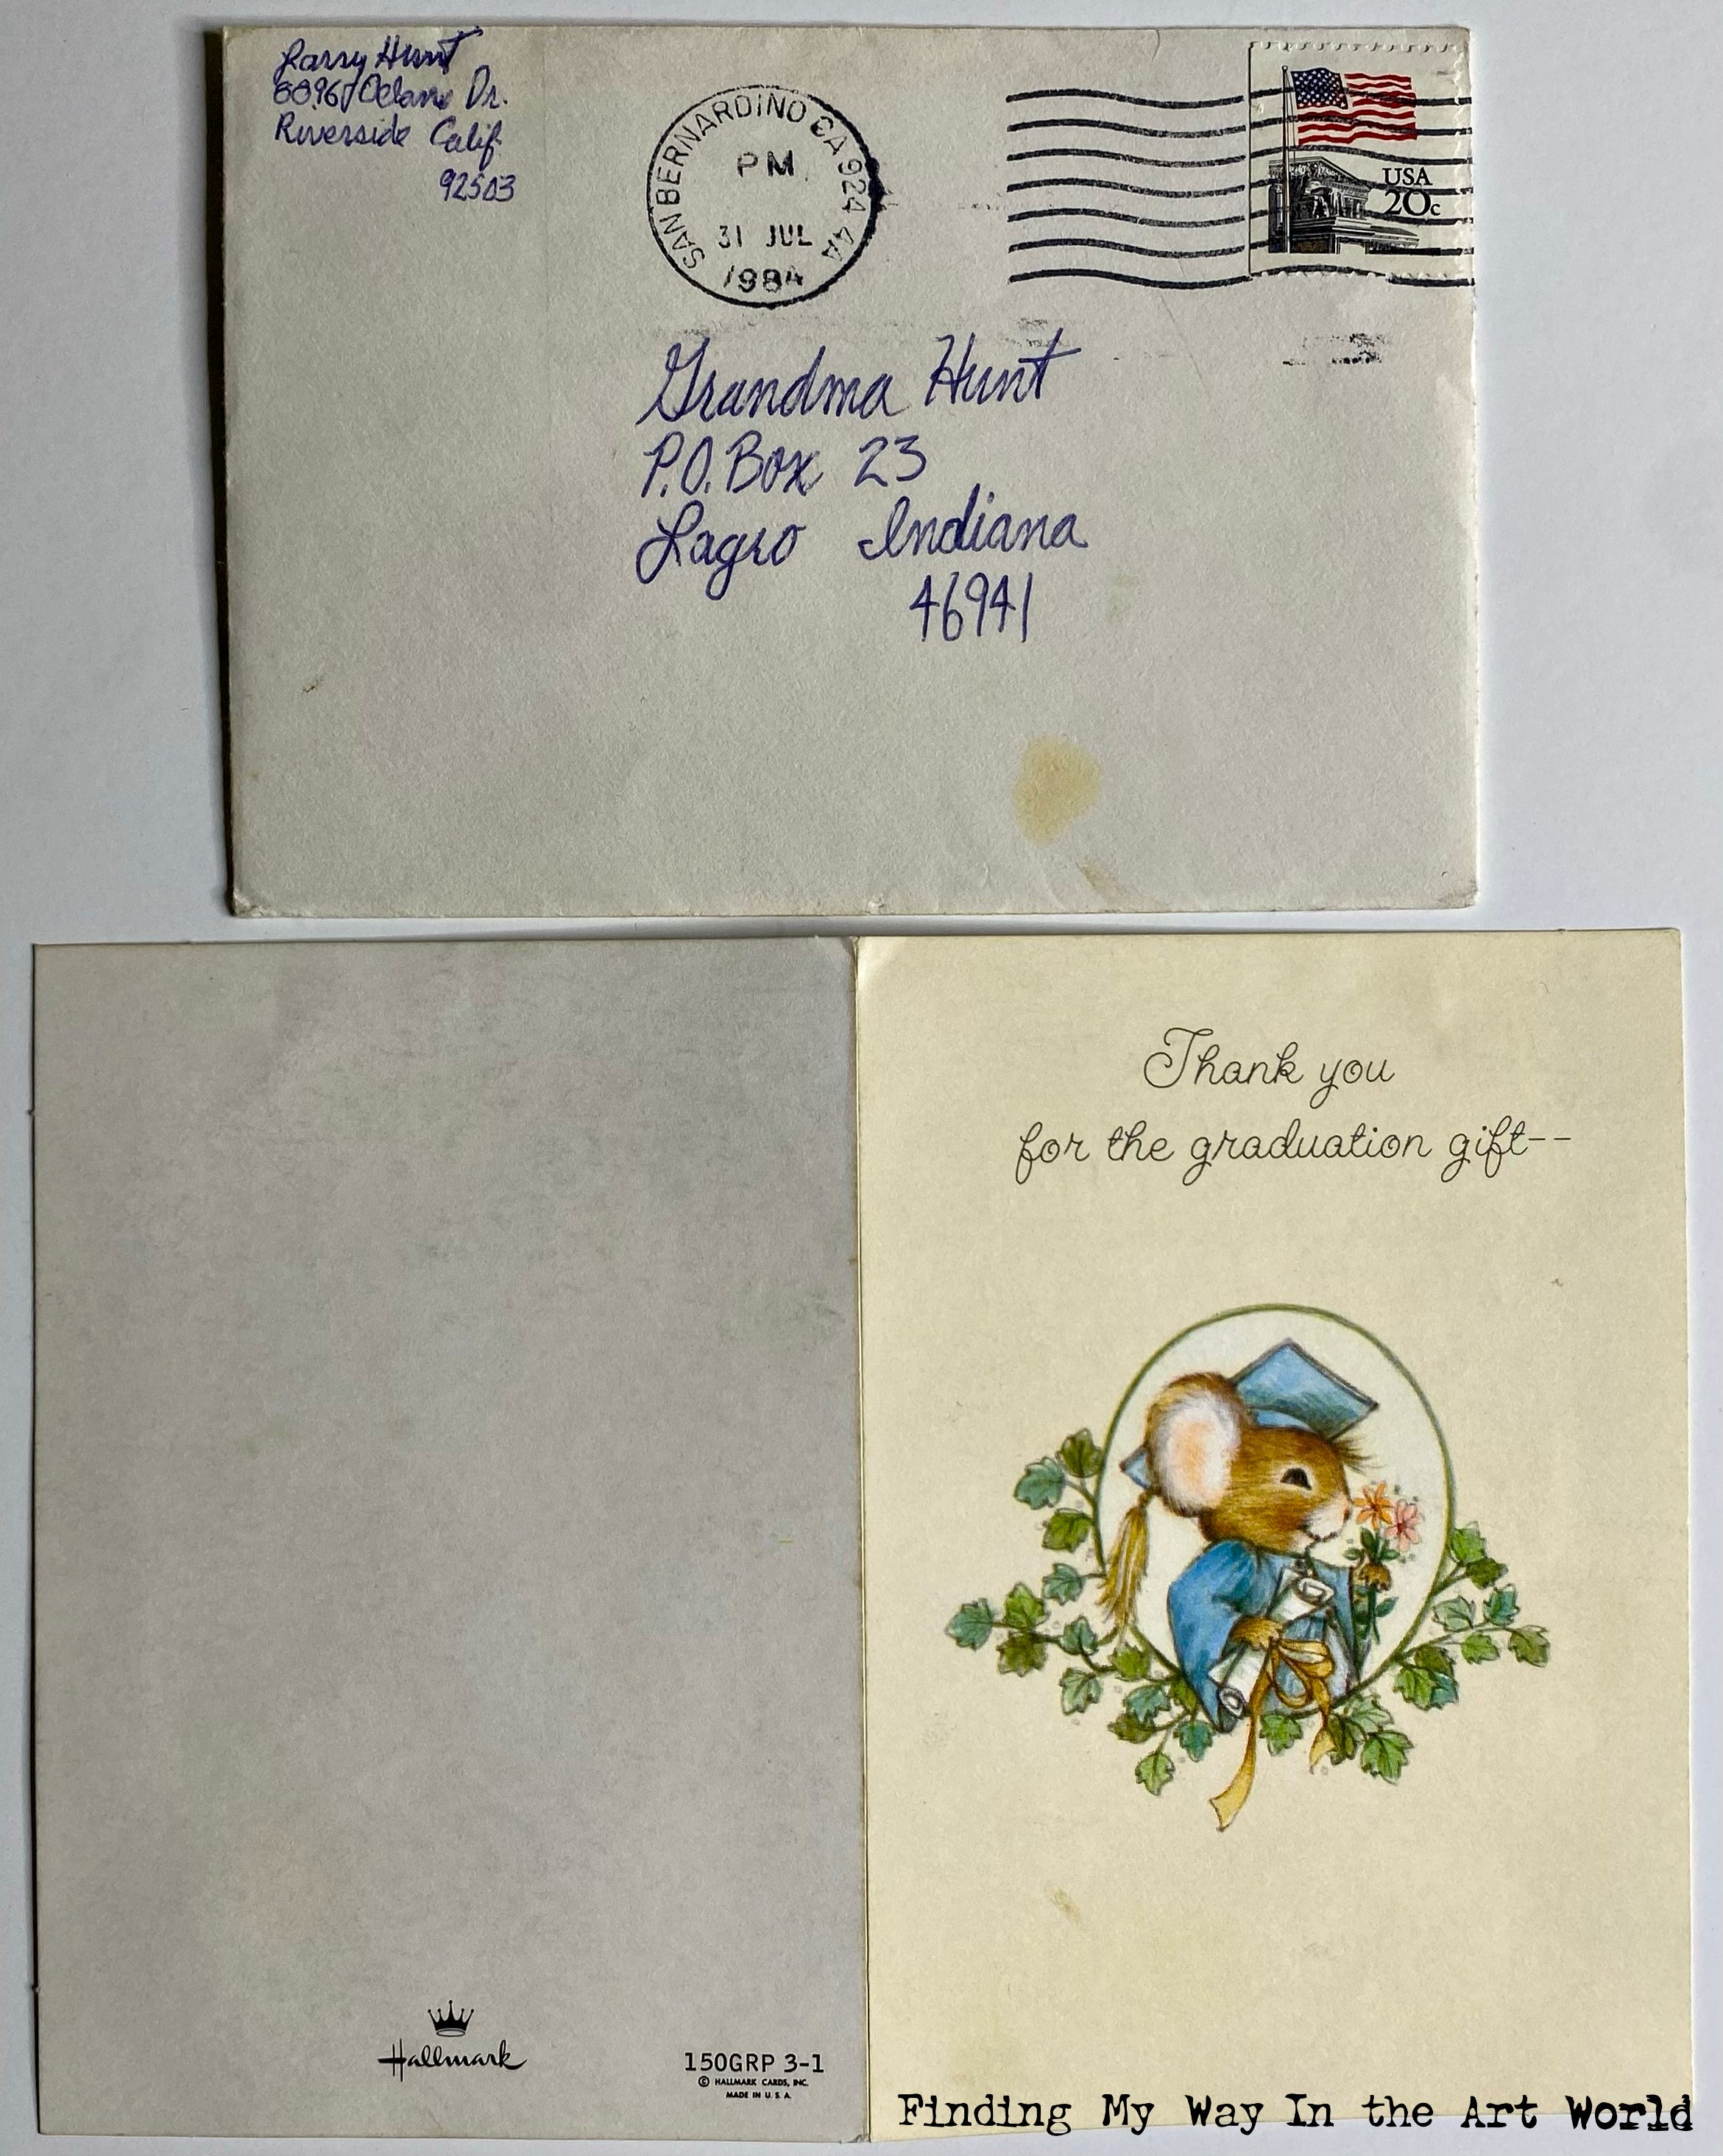 Larry Hunt
Dr.
Riverside Calif.
92503
SAN BERNARDINO CA 924 4A
PM
31 JUL
1984
USA
20c
Grandma Hunt
P.O. Box 23
Lagro Indiana
46941
Thank you
for the graduation gift--
Hallmark
150GRP 3-1
© HALLMARK CARDS, INC.
MADE IN U.S.A.
Finding My Way In the Art World